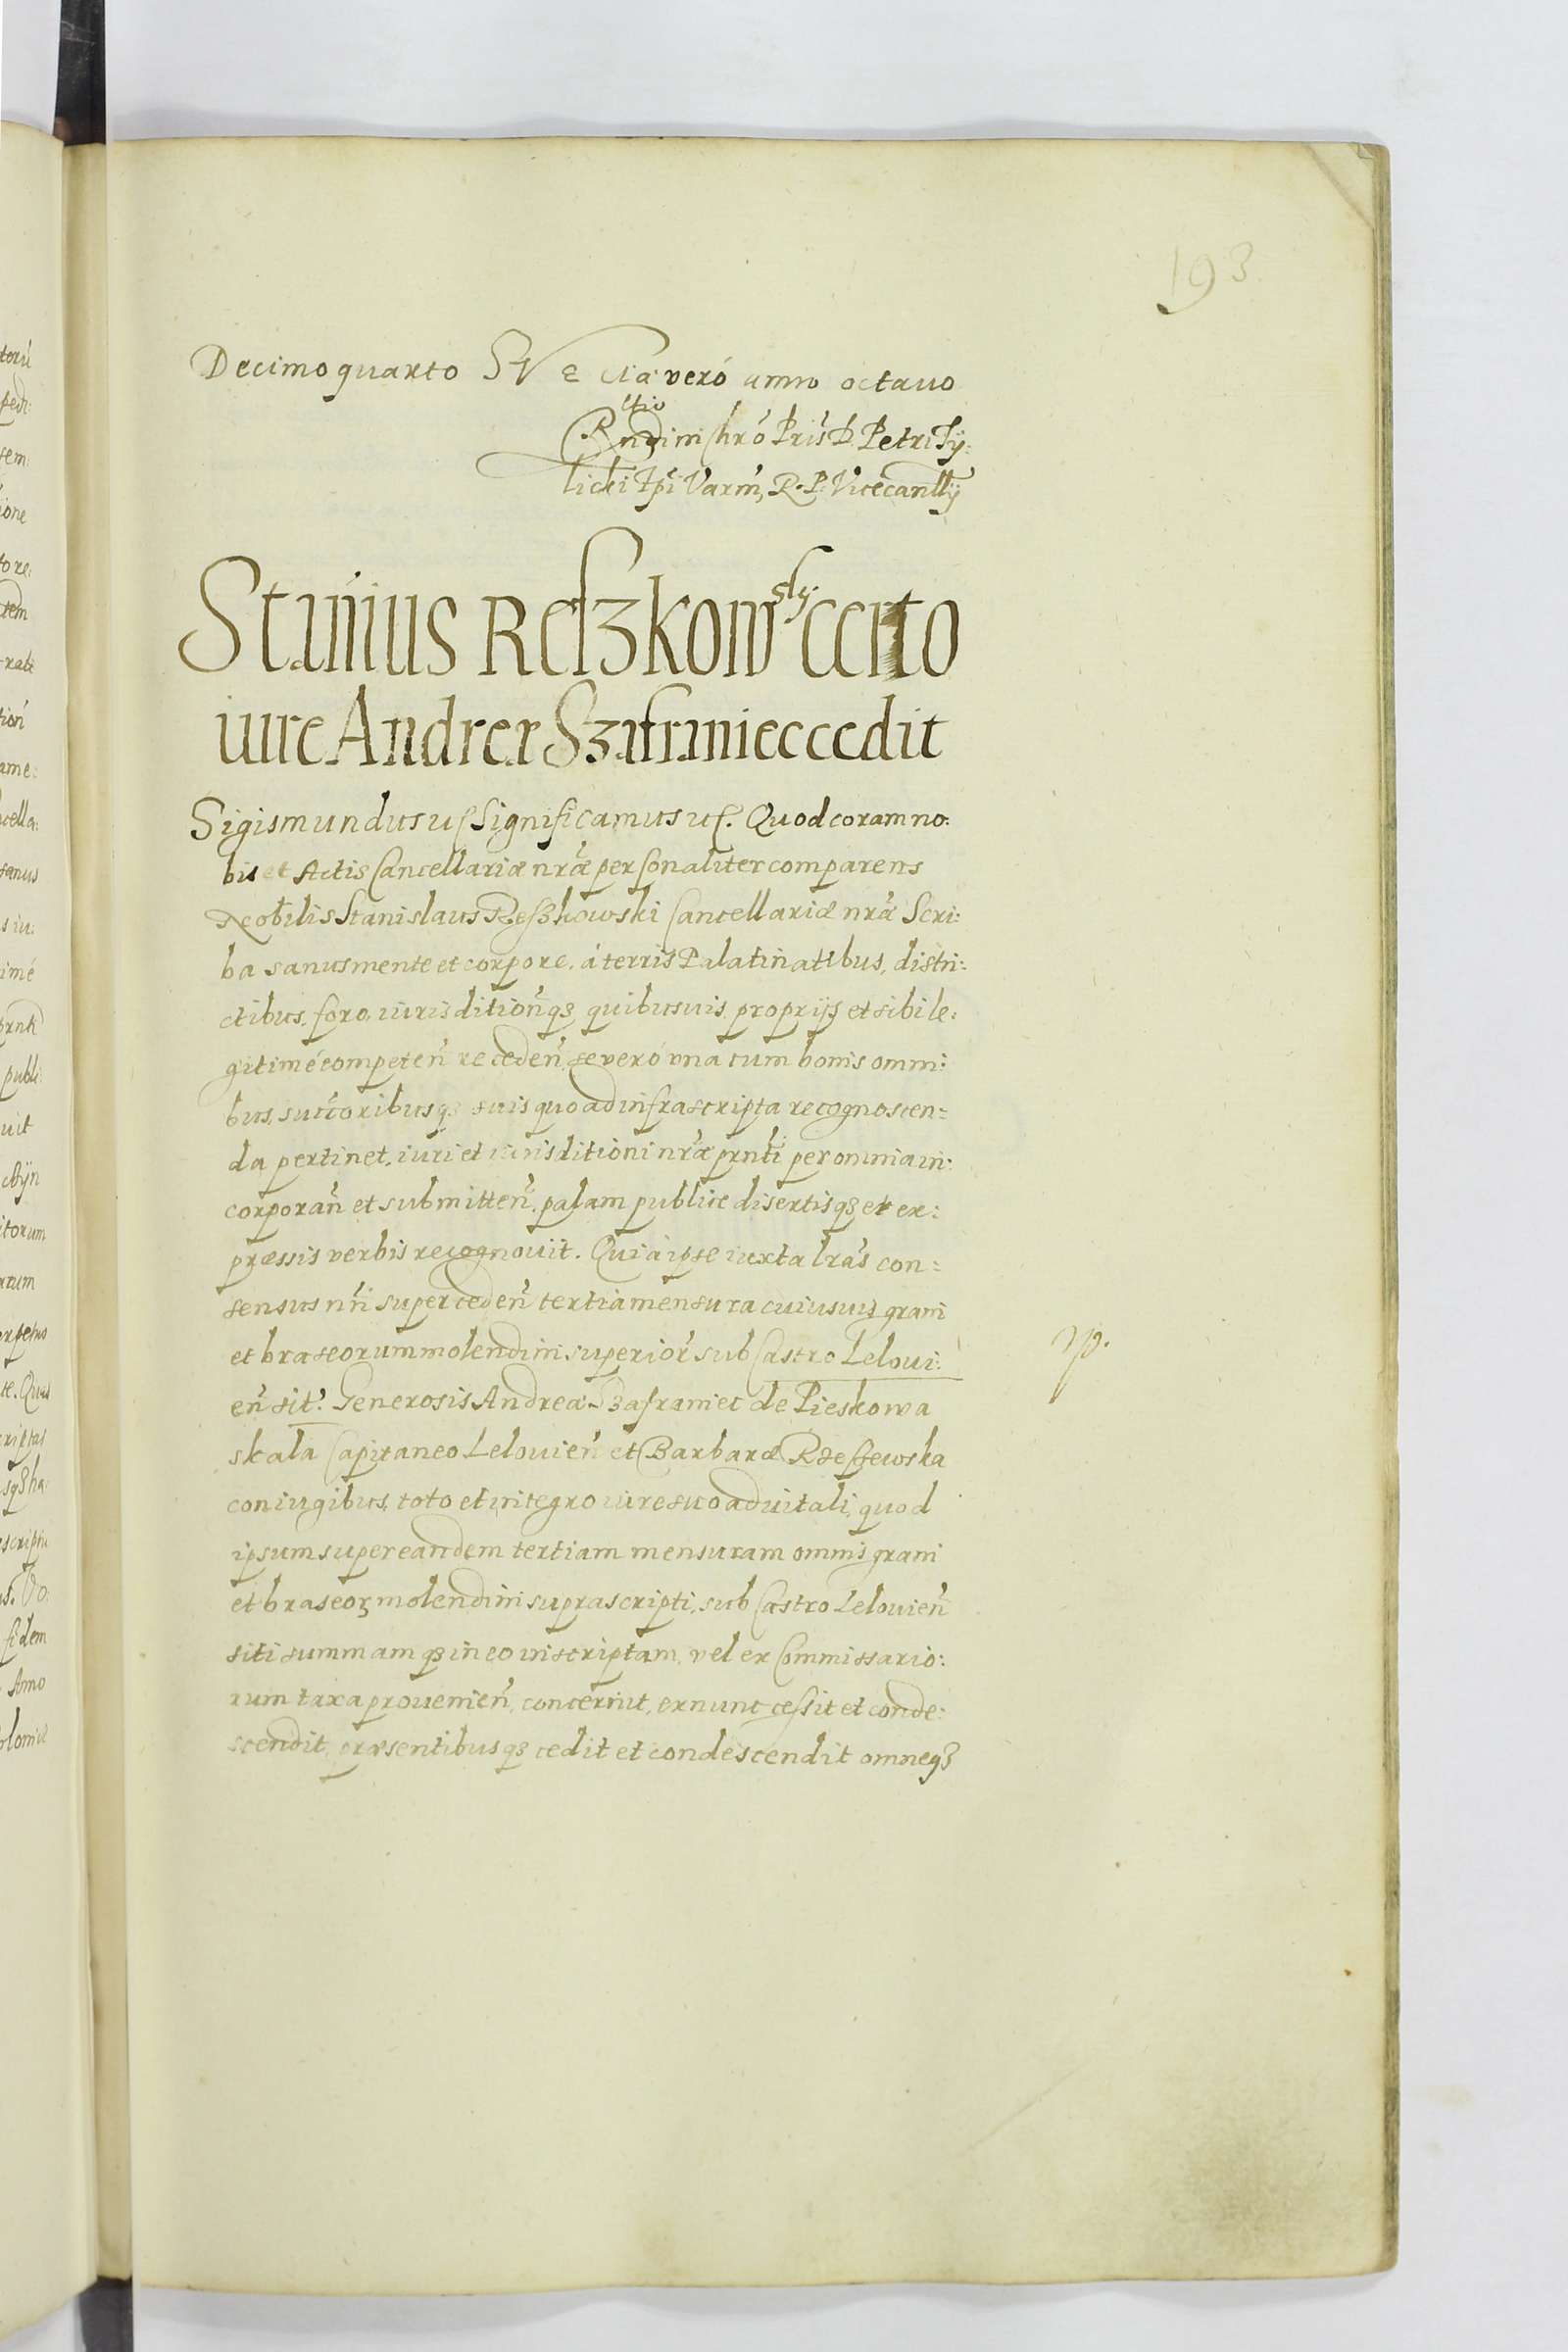 193
Decimoquarto Sveciæ veró anno octauo
Rndini Chró Pris D. Petri Ty:
licki Epi Varm, R. P. Vicecanllÿ
Stanius Reszkowsky certo
iure Andreæ Szafraniec cedit
Sigismundus uſ Significamus uſ. Quod coram no:
bis et Actis Cancellariæ nræ personaliter comparens
Nobilis Stanislaus Reszkowski Cancellariæ nræ Scri:
ba sanus mente et corpore, á terris Palatinatibus, distri:
ctibus, foro, iurisditionq3 quibusuis proprijs et sibi le:
gitimé competen̄ receden̄, se veró vna cum bonis omni:
bus, succoribusq3 suis quo ad infrascripta recognoscen=
da pertinet, iuri et iurisditioni nræ prnti per omnia in:
corporan̄ et submitten̄, palam publice disertisq3 et ex:
præssis verbis recognouit. Quia ipse iuxta lras con=
sensus nri super ceden̄ tertia mensura cuiusuis grani
et braseorum molendini superior sub Castro Leloui:
en̄ sit? Generosis Andreæ Szafraniec de Pieskowa
skala Capitaneo Lelouien̄ et Barbaræ Rzeszewska
coniugibus, toto et integro iure suo aduitali, quod
ipsum super eandem tertiam mensuram omnis grani
et braseor molendini suprascripti, sub Castro Lelouien̄
siti summamq3 in eo inscriptam, vel ex Commissario:
rum taxa prouenien̄, concernit, ex nunc cessit et conde:
scendit, præsentibusq3 cedit et condescendit omneq3